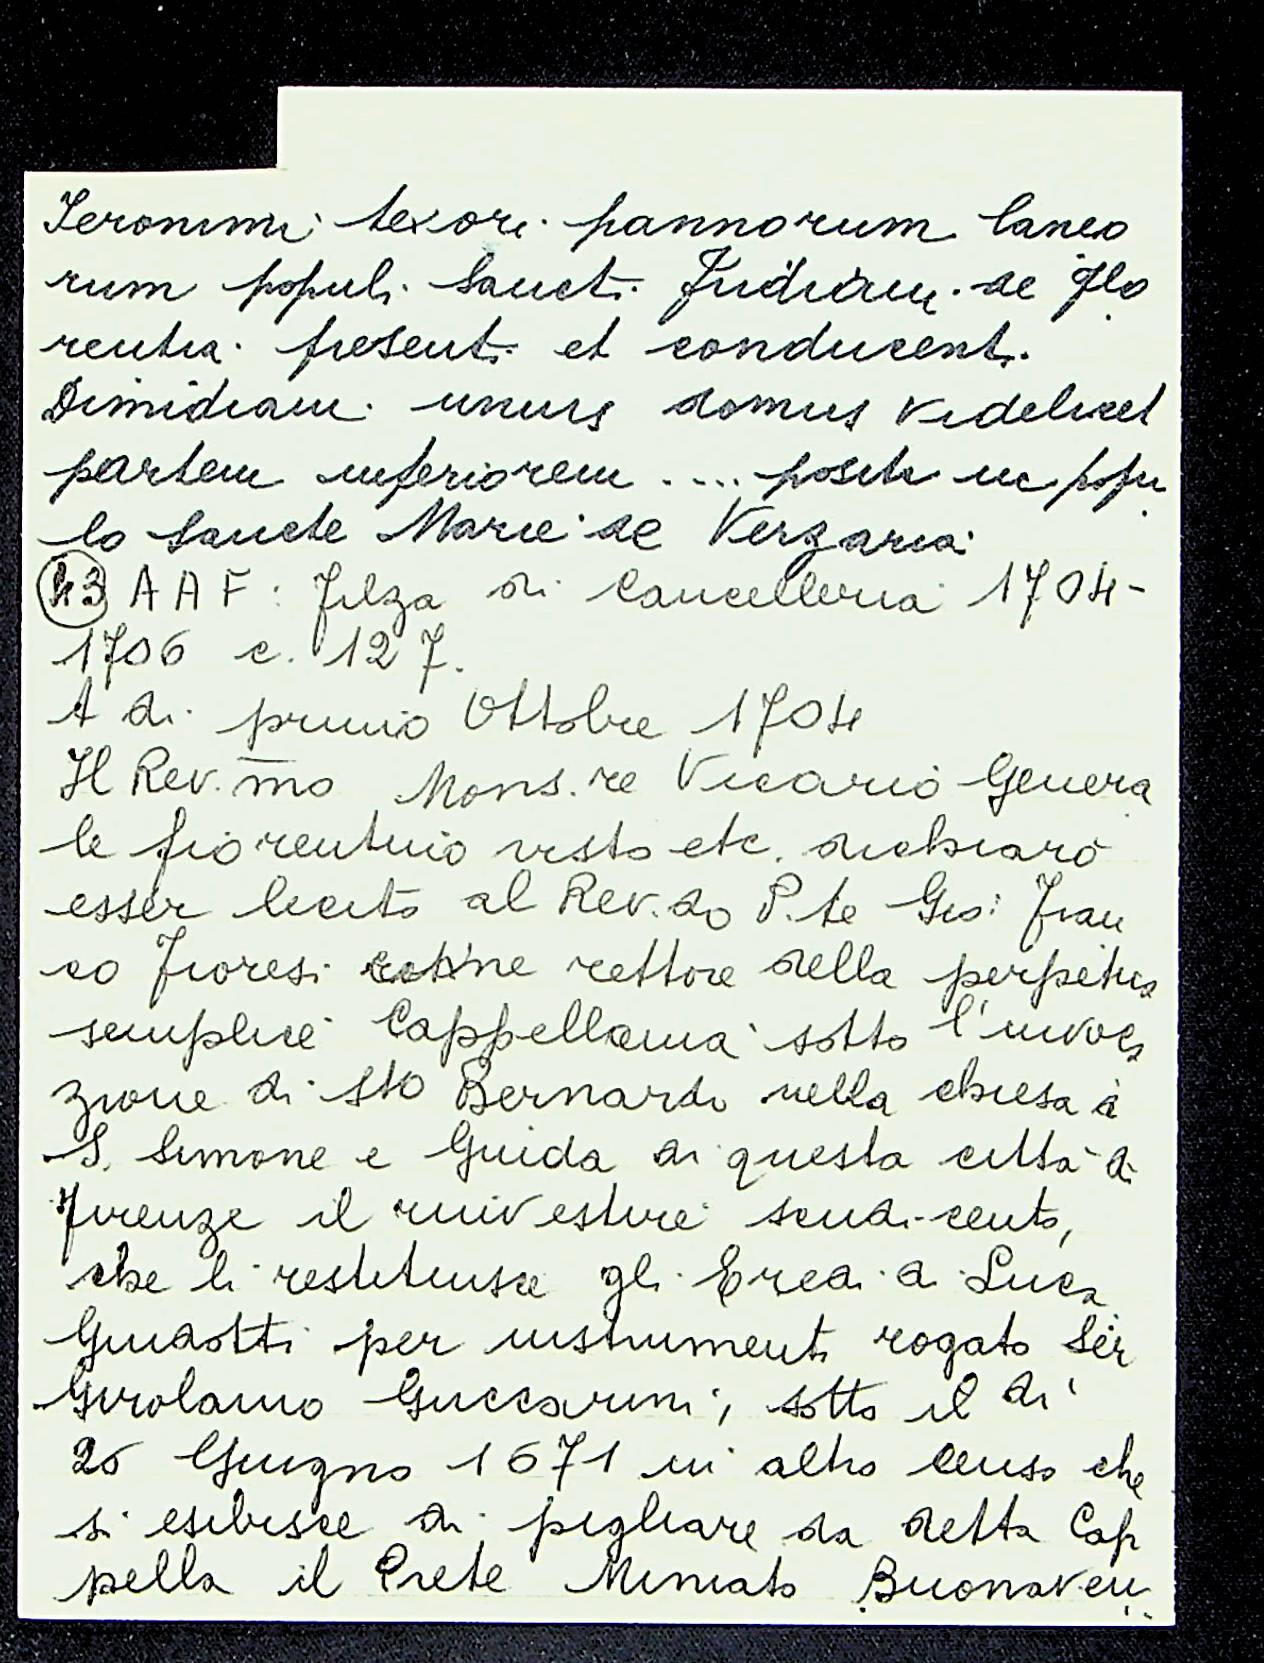 Ieronimi texori pannorum laneo
rum populi Sancti Fridiani de Flo
rentia presenti et conducenti
Dimidiam unius domus videlicet
partem inferiorem .... posite in popu
lo Sancte Marie de Verzaria
43 AAF: Filza di Cancelleria 1704-
1706 c. 127.
A di primo Ottobre 1704
Il Rev.mo Mons.re Vicario Genera
le fiorentino visto etc. dichiarò
esser lecito al Rev.do P.te Gio: Fran
co Fioresi come rettore della perpetua
semplice Cappellania sotto l'invoca
zione di Sto Bernardo nella chiesa di
S. Simone e Guida di questa città di
Firenze il rinvestire scudi cento,
che li restituisce gli Eredi di Luca
Guidotti per instrumenti rogato Ser
Girolamo Guccarini, sotto il dì
26 Giugno 1671 in altro Censo che
si esibisce di pigliare da detta Cap
pella il Prete Miniato Buonaven